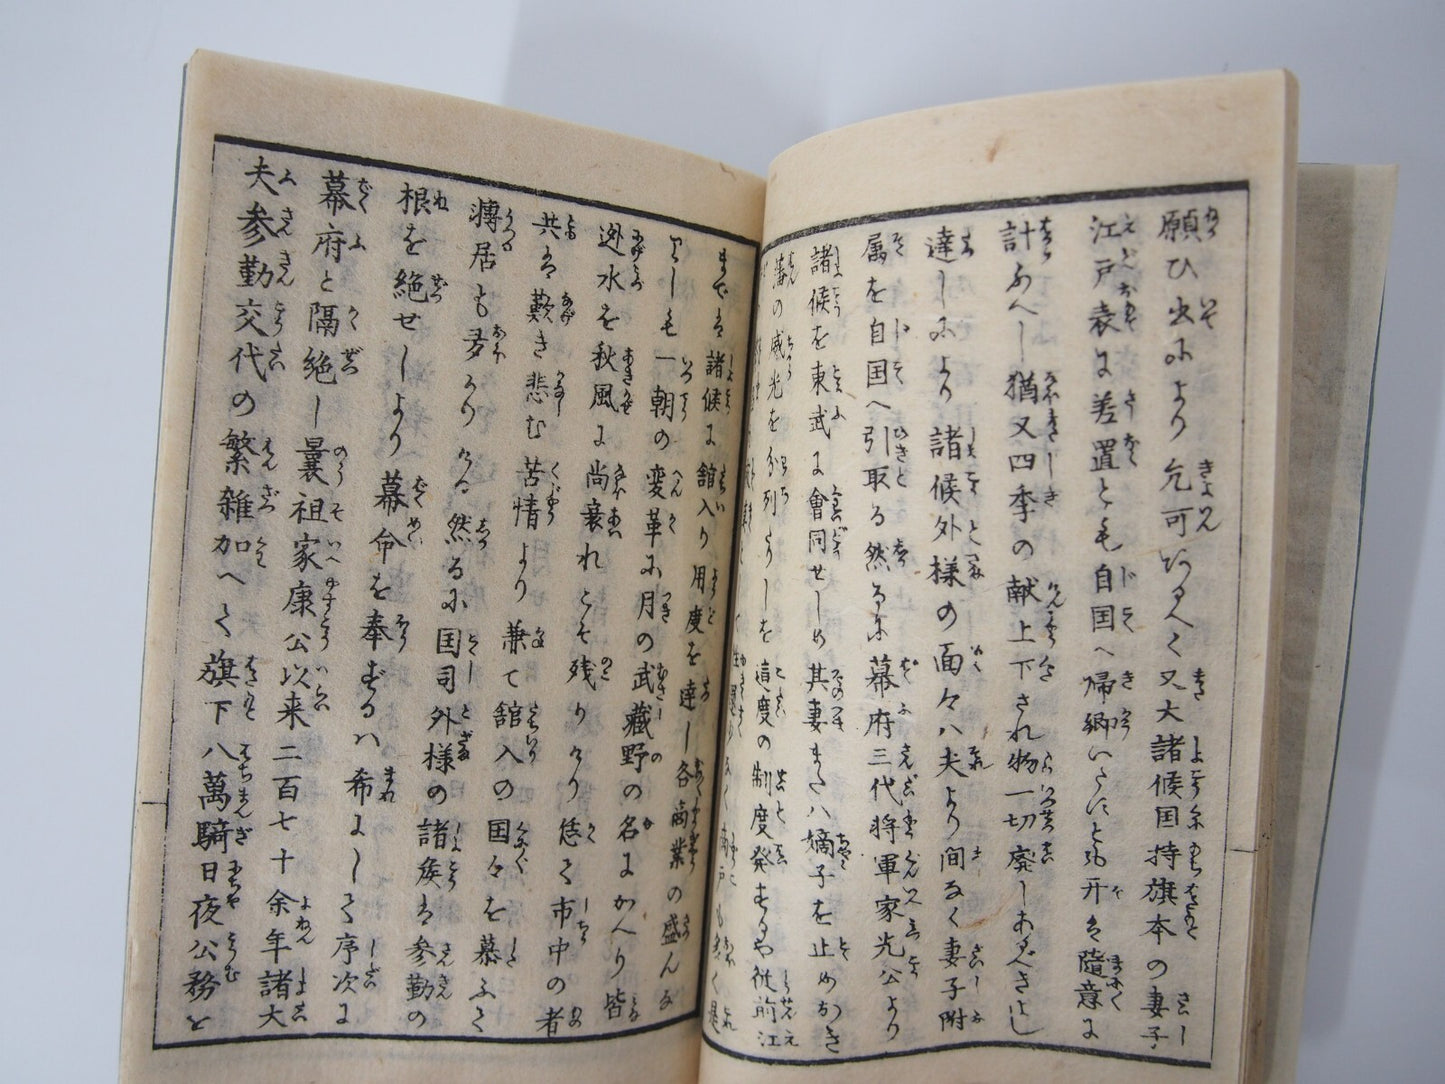 願ひ出により允可ありて又大諸候国持旗本の妻子
江戸表に差置とも自国へ帰郷いたすとも可為随意に
計ふべし猶又四季の献上下され物一切廃しあるべきよし
達しにより諸候外様の面々ハ夫より間なく妻子附
属を自国へ引取る然るに幕府三代将軍家光公より
諸候を東武に會同せしめ其妻または嫡子を止めおき
藩の威光を列らしを這度の制度発するや従前江
までは諸候に舘入り用度を達し各商業の盛んな
りしも一朝の変革に月の武藏野の名にかへり皆
逊水を秋風に尚衰れこそ残りけり恁て市中の者
共は歎き悲む苦情より兼て舘入の国々を慕ふて
轉居も多かりける然るに国司外様の諸矦は参勤の
根を絶せしより幕命を奉ずるハ希にして序次に
幕府と隔絶し曩祖家康公以来二百七十余年諸大
夫参勤交代の繁雑加へて旗下八萬騎日夜公務を